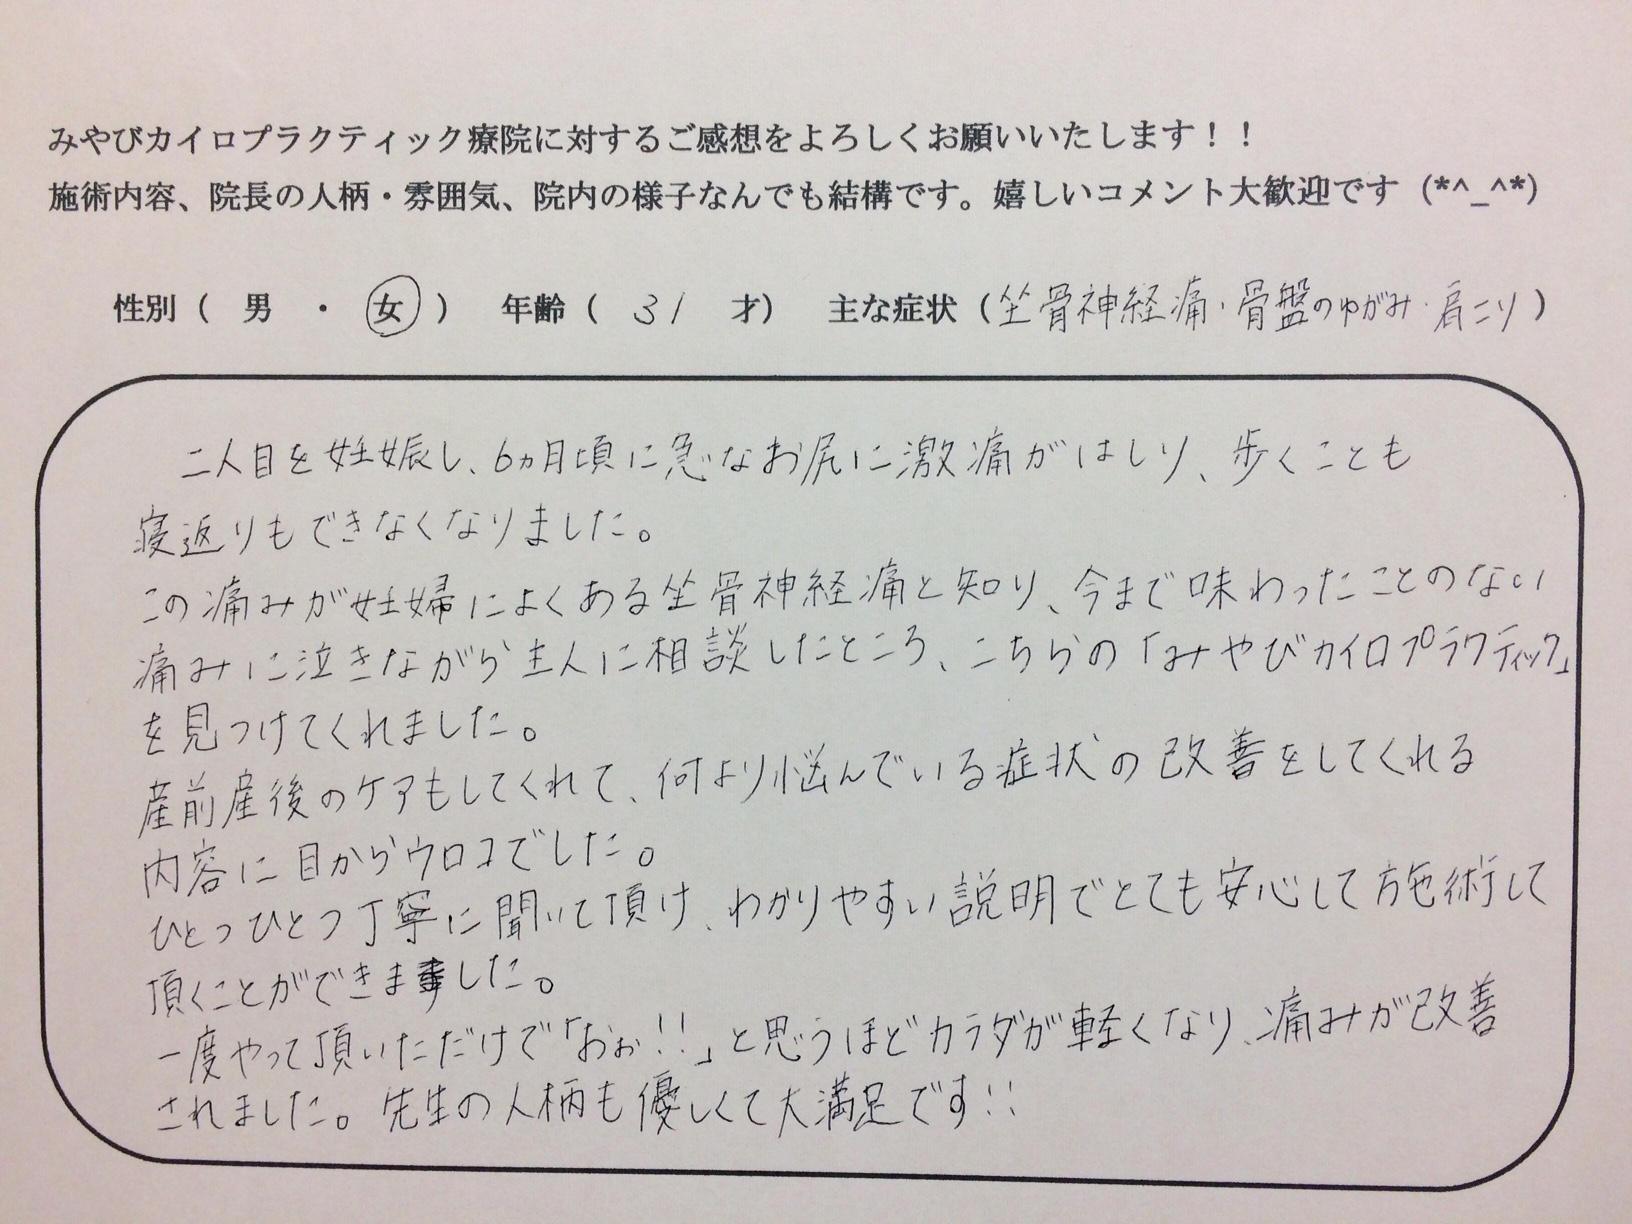 みやびカイロプラクティック療院に対するご感想をよろしくお願いいたします！！
施術内容、院長の人柄・雰囲気、院内の様子なんでも結構です。嬉しいコメント大歓迎です（*^_^*）
性別（　男　・　女　）　年齢（　31　才）　主な症状（坐骨神経痛・骨盤のゆがみ・肩こり）
二人目を妊娠し、6ヵ月頃に急なお尻に激痛がはしり、歩くことも
寝返りもできなくなりました。
この痛みが妊婦によくある坐骨神経痛と知り、今まで味わったことのない
痛みに泣きながら主人に相談したところ、こちらの「みやびカイロプラクティック」
を見つけてくれました。
産前産後のケアもしてくれて、何より悩んでいる症状の改善をしてくれる
内容に目からウロコでした。
ひとつひとつ丁寧に聞いて頂け、わかりやすい説明でとても安心して施術して
頂くことができました。
一度やって頂いただけで「おぉ!!」と思うほどカラダが軽くなり、痛みが改善
されました。先生の人柄も優しくて大満足です!!